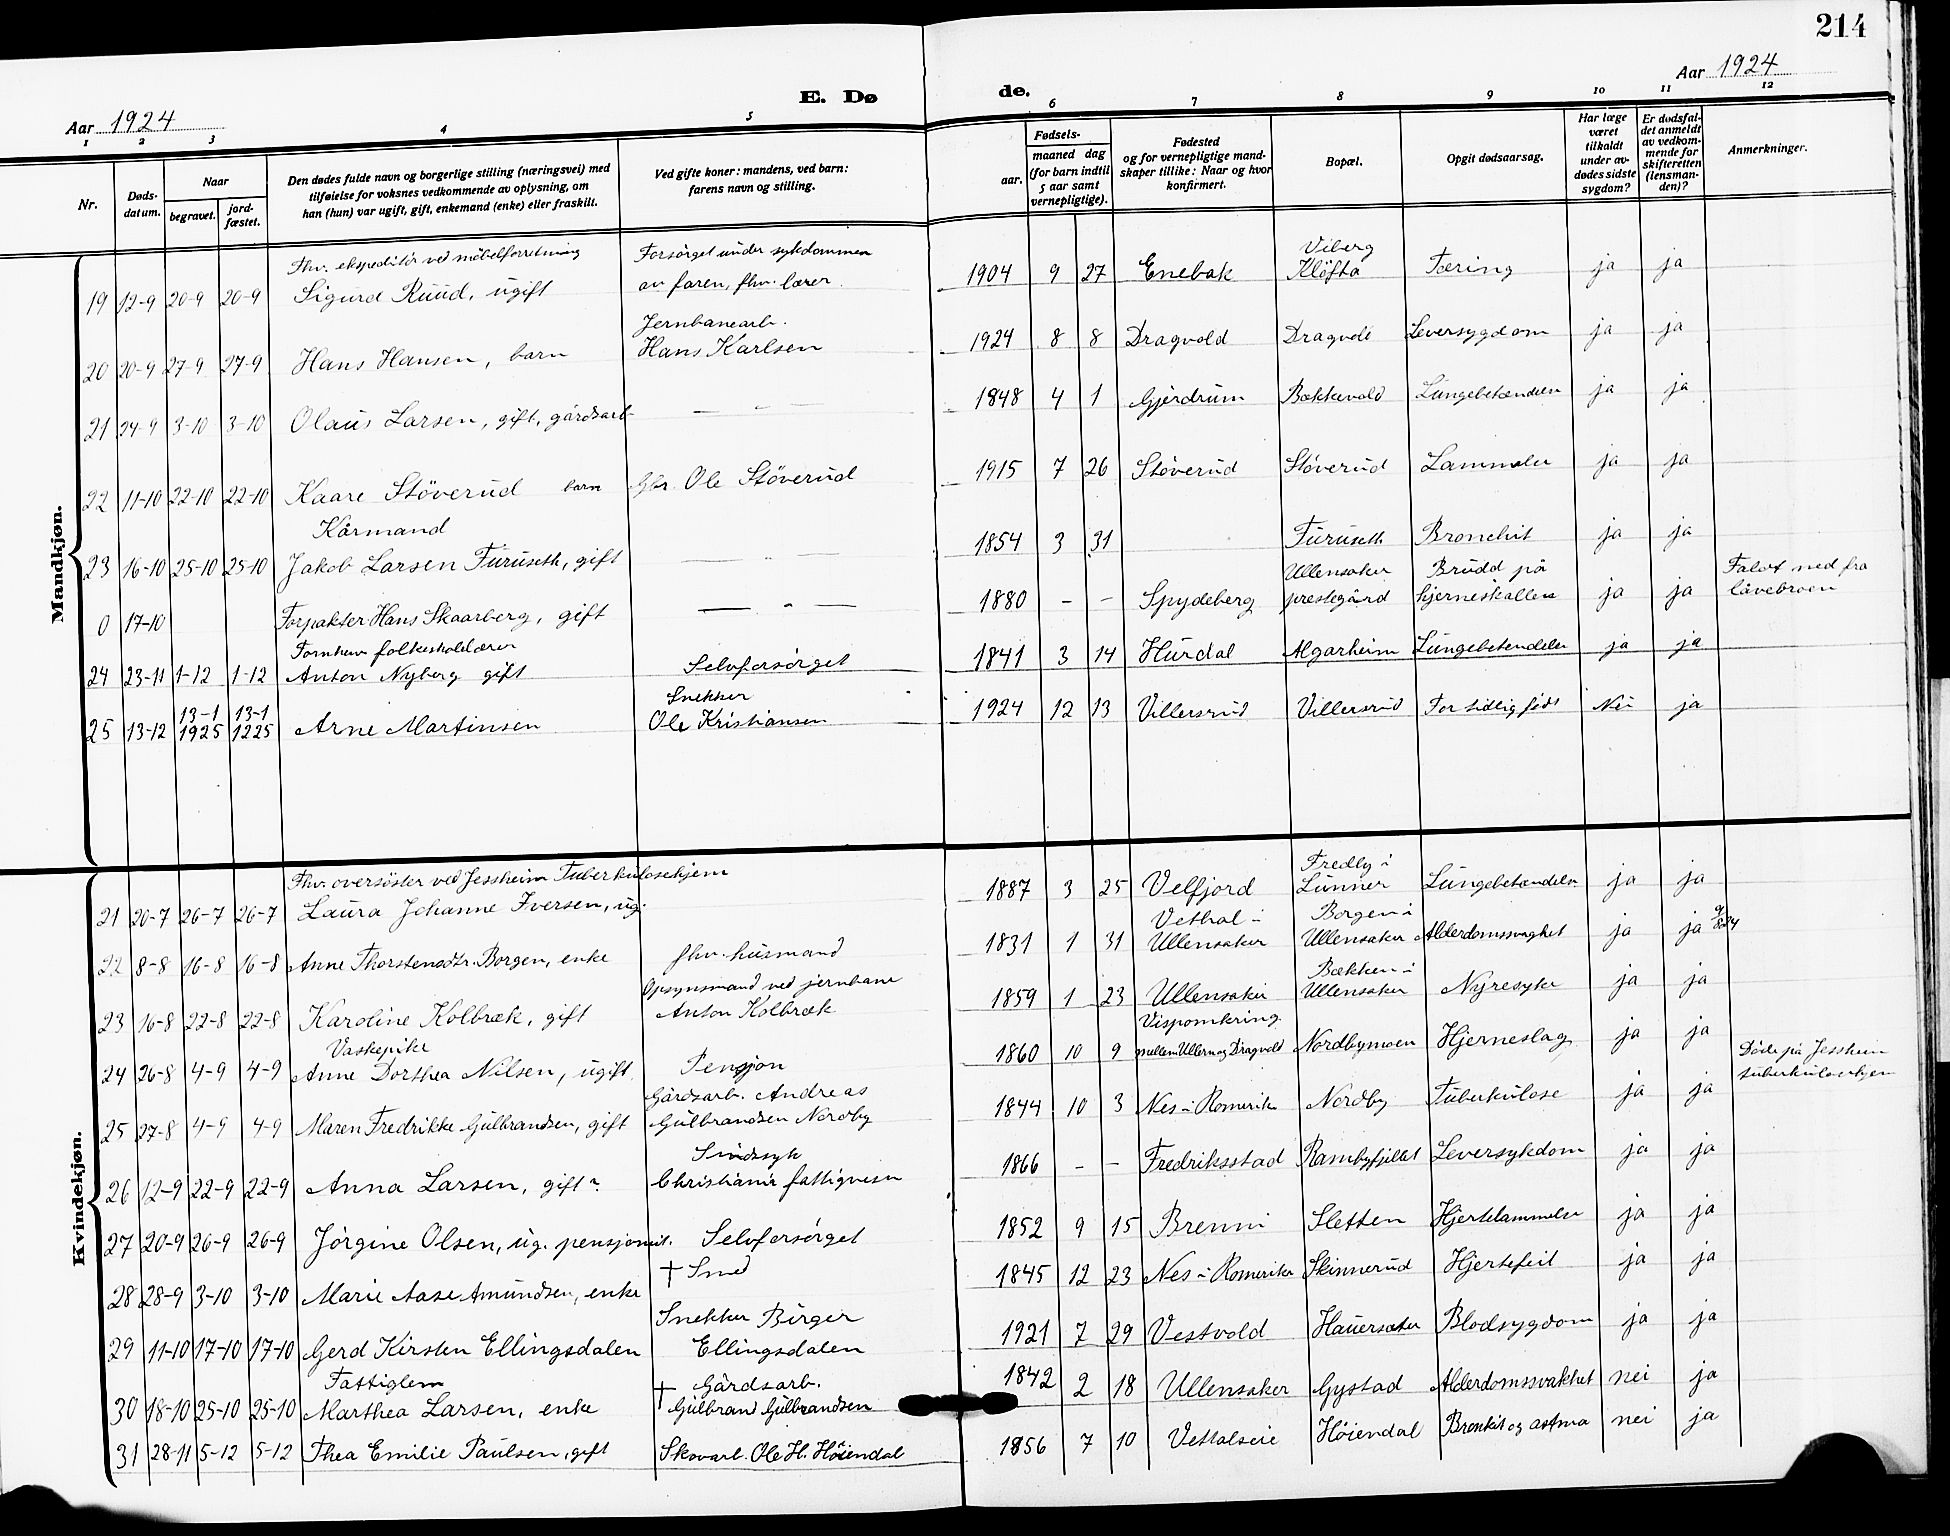 214
Aar 1924
Aar 1924
E. Dø
de.
1 2 3 4 5 6 7 8 9 10 11 12
Nr.
Døds-
datum.
Naar
begravet.
jord-
fæstet.
Den dødes fulde navn og borgerlige stilling (næringsvei) med
tilføielse for voksnes vedkommende av oplysning, om
han (hun) var ugift, gift, enkemand (enke) eller fraskilt.
Ved gifte koner: mandens, ved barn:
farens navn og stilling.
Fødsels-
aar.
maaned dag
(for barn indtil
5 aar samt
vernepligtige).
Fødested
og for vernepligtige mand-
skaper tillike: Naar og hvor
konfirmert.
Bopæl.
Opgit dødsaarsag.
Har læge
været
tilkaldt
under av-
dødes sidste
sygdom?
Er dødsfal-
det anmeldt
av vedkom-
mende for
skifteretten
(lensman-
den)?
Anmerkninger.
Mandkjøn.
Fhv. ekspeditör ved möbelforretning Forsörget under sykdommen Viberg
19 12-9 20-9 20-9 Sigurd Ruud, ugift av faren, fhv. lærer. 1904 9 27 Enebak Klöfta Tæring ja ja
Jernbanearb.
20 20-9 27-9 27-9 Hans Hansen, barn Hans Karlsen 1924 8 8 Dragvold Dragvold Leversygdom ja ja
21 24-9 3-10 3-10 Olaus Larsen, gift, gårdsarb. — — — 1848 4 1 Gjerdrum Bakkevold Lungebetændelse ja ja
22 11-10 22-10 22-10 Kaare Stöverud barn Gbr. Ole Stöverud 1915 7 26 Stöverud Stöverud Lammelse ja ja
Kårmand
23 16-10 25-10 25-10 Jakob Larsen Furuseth, gift — — 1854 3 31 Furuseth Bronchit ja ja
Ullensaker Brudd på Falot ned fra
0 17-10 Forpakter Hans Skaarberg, gift — - — 1880 - - Spydeberg prestegård hjerneskallen ja ja låvebroen
Fornhen folkeskolelærer
24 23-11 1-12 1-12 Anton Nyberg gift Selvforsörget 1841 3 14 Hurdal Algarheim Lungebetendelse ja ja
13-1 13-1 Snekker
25 13-12 1925 1225 Arne Martinsen Ole Kristiansen 1924 12 13 Villersrud Villersrud For tidlig födt Nei ja
Kvindekjøn.
Fhv. oversöster ved Jessheim Tuberkulosehjem Fredby i
21 20-7 26-7 26-7 Laura Johanne Iversen, ug. 1887 3 25 Velfjord Lunner Lungebetændelse ja ja
Vethal i Borgen i
22 8-8 16-8 16-8 Anne Thorstensdtr. Borgen, enke fhv. husmand 1831 1 31 Ullensaker Ullensaker Alderdomssvaghet ja ja 9/8 24
Opsynsmand ved jernbane Bækken i
23 16-8 22-8 22-8 Karoline Kolbræk, gift Anton Kolbræk 1859 1 23 Ullensaker Ullensaker Nyresyke ja ja
Vaskepike
24 26-8 4-9 4-9 Anne Dorthea Nilsen, ugift Pensjon 1860 10 9 mellem Ullern og Dragvold Nordbymoen Hjerneslag ja ja
Gårdsarb. Andreas Döde på Jessheim
25 27-8 4-9 4-9 Maren Fredrikke Gulbrandsen, gift Gulbrandsen Nordby 1844 10 3 Nes i Romerike Nordby Tuberkulose ja ja tuberkulosehjem
Sindssyk
26 12-9 22-9 22-9 Anna Larsen, gift? Christiania fattigvesen 1866 - - Fredriksstad Rambyfjellet Leversykdom ja ja
27 20-9 26-9 26-9 Jörgine Olsen, ug. pensjonist. Selvforsörget 1852 9 15 Brenni Sletten Hjertelammelse ja ja
28 28-9 3-10 3-10 Marie Aase Amundsen, enke † Smed 1845 12 23 Nes i Romerike Skinnerud Hjertefeil ja ja
Snekker Birger
29 11-10 17-10 17-10 Gerd Kirsten Ellingsdalen Ellingsdalen 1921 7 29 Vestvold Hauersæter Blodsygdom ja ja
Fattiglem † Gårdsarb.
30 18-10 25-10 25-10 Marthea Larsen, enke Gulbrand Gulbrandsen 1842 2 18 Ullensaker Gystad Alderdomssvakhet nei ja
31 28-11 5-12 5-12 Thea Emilie Paulsen, gift Skovarb. Ole H. Höiendal 1856 7 10 Vettalseie Höiendal Bronkit og astma nei ja